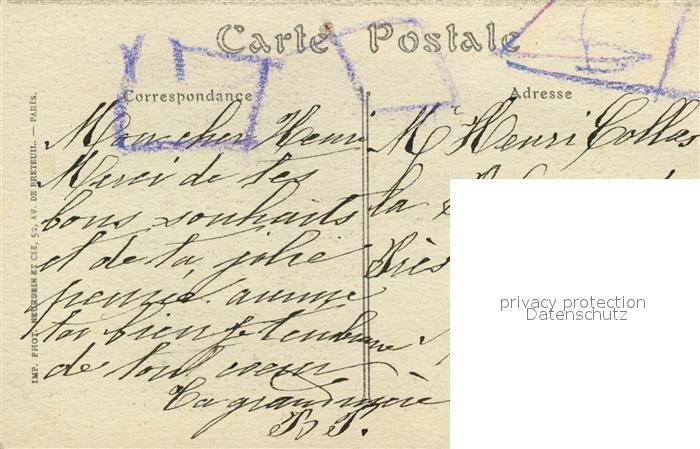 Carte Postale
Correspondance
Adresse
Mon cher Henri
Merci de tes
bons souhaits
et de ta jolie
pensée. aurure
toi bien je t'embrasse
de tout coeur
Ta grand'mère
B P.
Mr Henri Collas
la
Près
IMP. PHOT. NEURDEIN ET CIE, 52, AV. DE BRETEUIL. — PARIS.
privacy protection
Datenschutz